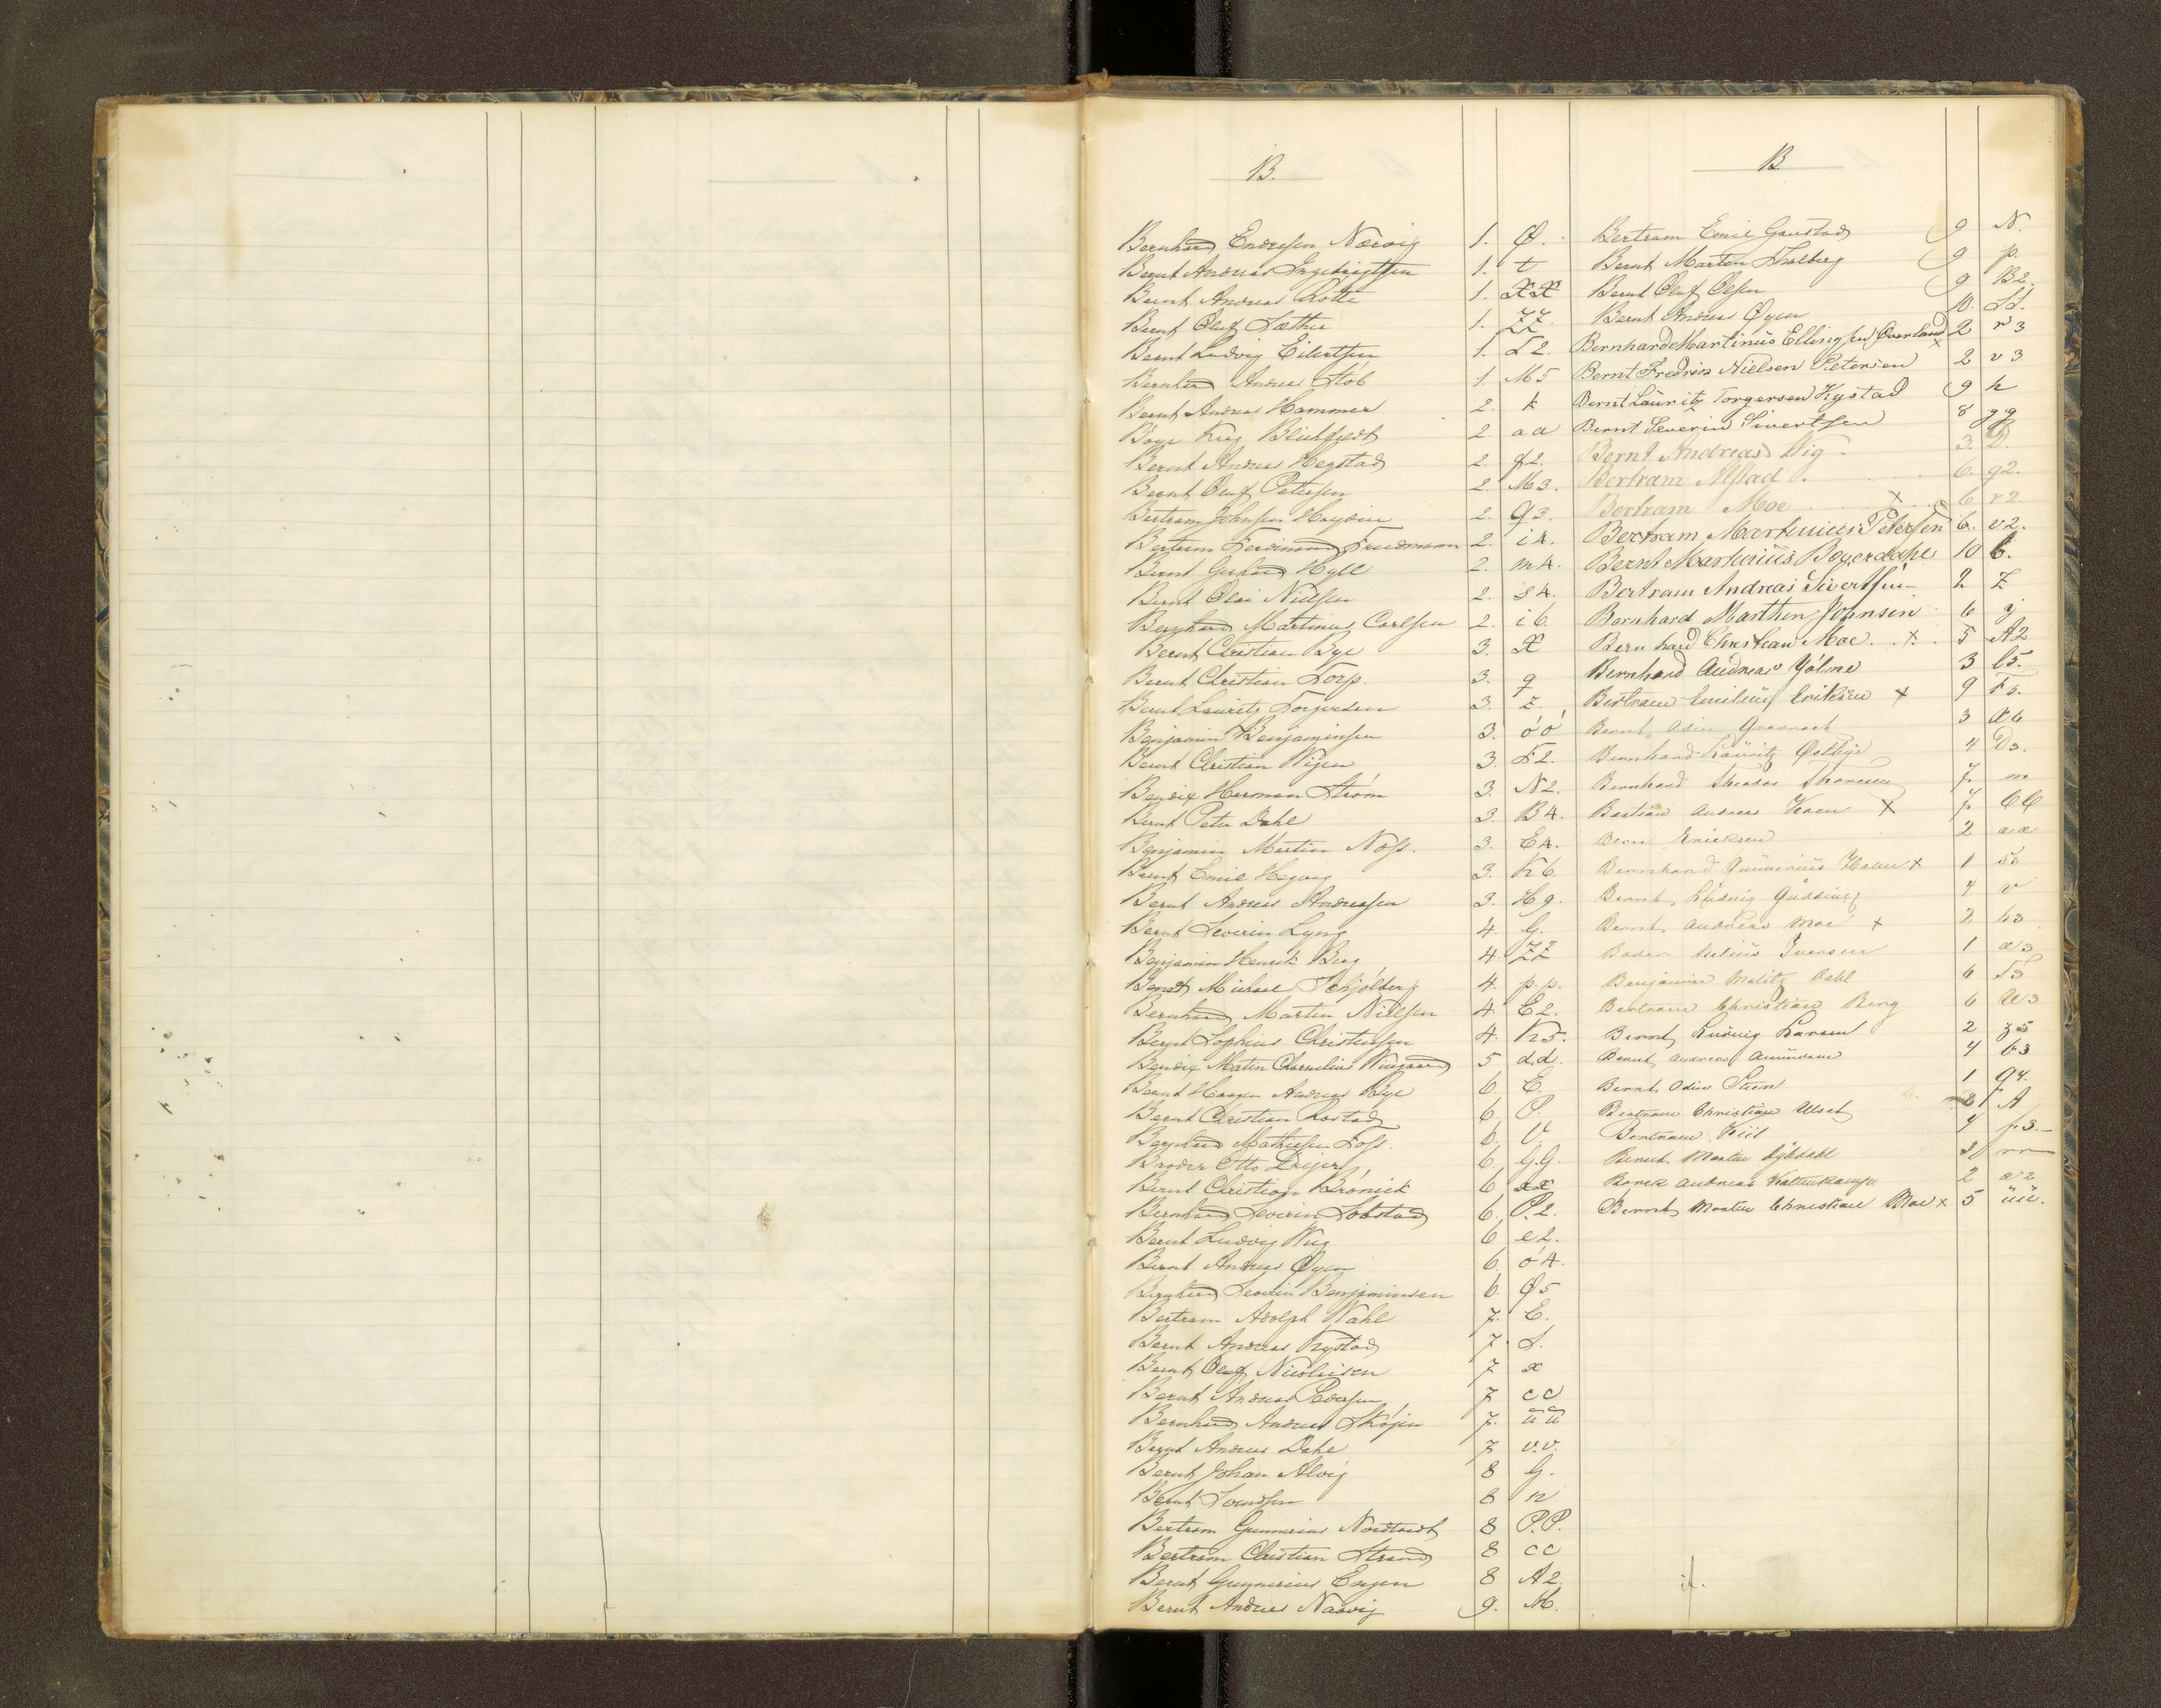 B.
Bernhard Endresen Nervig 1. Ø.
Bernt Andreas Ingebrigtsen 1. t
Bernt Andreas Rotte 1. X X
Bernt Oluf Sæther 1. ZZ.
Bernt Ludvig Eilertsen 1. L2.
Bernhard Andreas Støb 1. M5
Bernt Andreas Hammer 2. k
Krog Blichfeldt 2. aa
Bernt Andreas Hegstad 2. f2.
Bernt Oluf Petersen 2. M3.
Bertram Johnsen 2. q3.
Bertram Ferdinand 2. i4.
Bernt Gerhard Hyll 2. m4.
Bernt Olai Nielsen 2. s4.
Bernhard Martinus Carlsen 2. i6.
Bernt Christian Bye 3. X
Bernt Christian Torp. 3. q
Bernt Lauritz Torgersen 3. z.
Benjamin Benjaminsen 3. öö
Bernt Christian Wigen 3. F2.
Bendix Herman Strøm 3. N2.
Bernt Peter Dahl 3. B4.
Benjamin Martin Noss. 3. E4.
Bernt Emil Hegvig 3. K6.
Bernt Andreas Andreassen 3. H9.
Bernt Severin Lyng 4. G.
Benjamin Henrik Berg 4. ZZ
Berndt Michael Schjølberg 4. p.p.
Bernhard Martin Nielsen 4. E2.
Bernt Sophus Christensen 4. K5.
Bendix Matin Cornelius Wiigaard 5 dd.
Bernt Haagen Andreas Bye 6. E.
Bernt Christian Rostad 6. P.
Bernhard Mathisen Foss. 6. V.
Broder Otto Dreyer 6. G.G.
Bernt Christian Brönick 6. xx
Bernhard Severin Sobstad 6. P.2.
Bernt Ludvig Wiig 6 e2.
Bernt Andreas Øyen 6. ö4.
Bernhard Severin Benjaminsen 6. Ø5
Bertram Adolph Wahl 7. E.
Bernt Andreas Rystad 7. S.
Bernt Oluf Nicolaisen 7 x
Bernt Andreas Pedersen 7 cc
Bernhard Andreas Skøjen 7. üü
Bernt Andreas Dahl 7 v.v.
Bernt Johan Alvig 8 G.
Bernt Svendsen 8 n
Bertram Gunnerius Nordtvedt 8 P.P.
Bertram Christian Strand 8 cc
Bernt Gunnerius Engen 8 A2.
Bernt Andreas Naavig 9. M.
B.
Bertram Emil Gaustad 9 N.
Bernt Martin Stolberg 9 p.
Bernt Oluf Olsen 9 B2.
Bernt Andreas Øyen 10 Sd.
Bernhard Martinüs Ellingsen Overland x 2 r3
Bernt Fredrik Nielsen Petersen 2 v3
Bernt Laüritz Torgersen Kystad 9 h
Bernt Severin Sivertsen 8 gg
Bernt Andreas Vig. 3. D.
Bertram Alstad. 6. q2.
Bertram Moe x 6 r2
Bertram Martinius Petersen 6. v2.
Bernt Markuüs Bogerdahl 10 b.
Bertram Andreas Sivertsen 2 Z
Bernhard Marthin Johnsen 6 ij
Bernhard Christian Moe . x . 5 A2
Bernhard Andreas Jølme 3 l5.
Bertram Emilius Eriksen x 9 F3.
Bernt Odin 3 X6
Bernhard Laüritz Østbye 4 D3.
Bernhard Theodor Thoresen 7. m
Bastian Andreas x 7. CC
Bernt Ericksen 2 ææ
Bernhard Günerius Holm x 1 öö
Bernt Ludvig 4 v
Bernt Andreas Moe x 2 h3
Iversen 1 æ3
Benjamin Malitz Dahl 6 S3
Bertram Christian Berg 6 U3
Bernt Ludvig Larsen 2 z5
Bernt Andreas Amundsen 4 b3
Bernt Odin Steen 1 q4.
Bertram Christian Ulset 8 A
Bertram Kiil 4 p3.
Bernt Martin 3 rr
Andreas 2 a2
Bernt Martin Christian Moe x 5 üü.